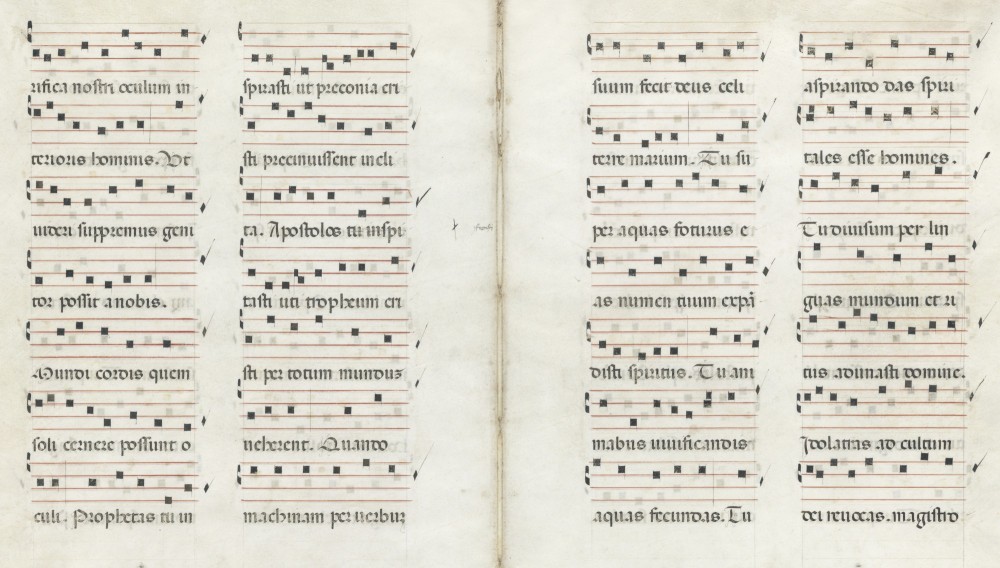 rifica nostri oculum in
terioris hominis. Ut
uideri suppremus geni
tor possit a nobis.
Mundi cordis quem
soli cernere possunt o
culi. Prophetas tu in
spirasti ut preconia cri
sti precinuissent incli
ta. Apostolos tu inspi
rasti uti tropheum cri
sti per totum mundum
ueherent. Quando
machinam per uerbum
suum fecit deus celi
terre marium. Tu su
per aquas foturus e
as numen tuum expā
disti spiritus. Tu ani
mabus uiuificandis
aquas fecundas. Tu
aspirando das spiri
tales esse homines.
Tu diuisum per lin
guas mundum et ri
tus adunasti domine.
Idolatras ad cultum
dei reuocas. magistro